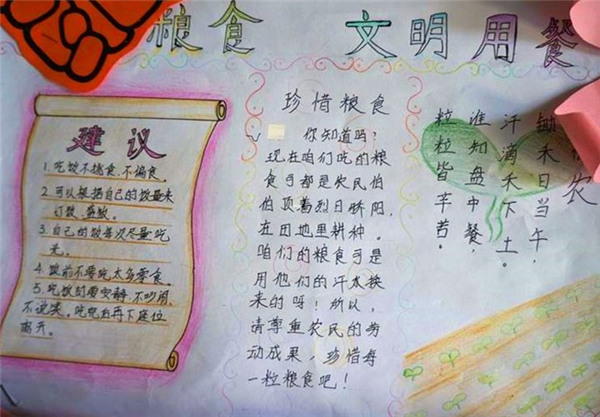 粮食 文明用餐
建议
1.吃饭不挑食、不偏食。
2.可以根据自己的饭量来
订饭、盛饭。
3.自己的饭每次尽量吃
完。
4.饭前不要吃太多零食。
5.吃饭时要安静,不吵闹、
不说笑。吃完后再下座位
离开。
珍惜粮食
你知道吗?
现在咱们吃的粮
食可都是农民伯
伯顶着烈日骄阳,
在田地里耕种。
咱们的粮食可是
用他们的汗水换
来的呀!所以,
请尊重农民的劳
动成果,珍惜每
一粒粮食吧!
农
锄禾日当午,
汗滴禾下土。
谁知盘中餐,
粒粒皆辛苦。